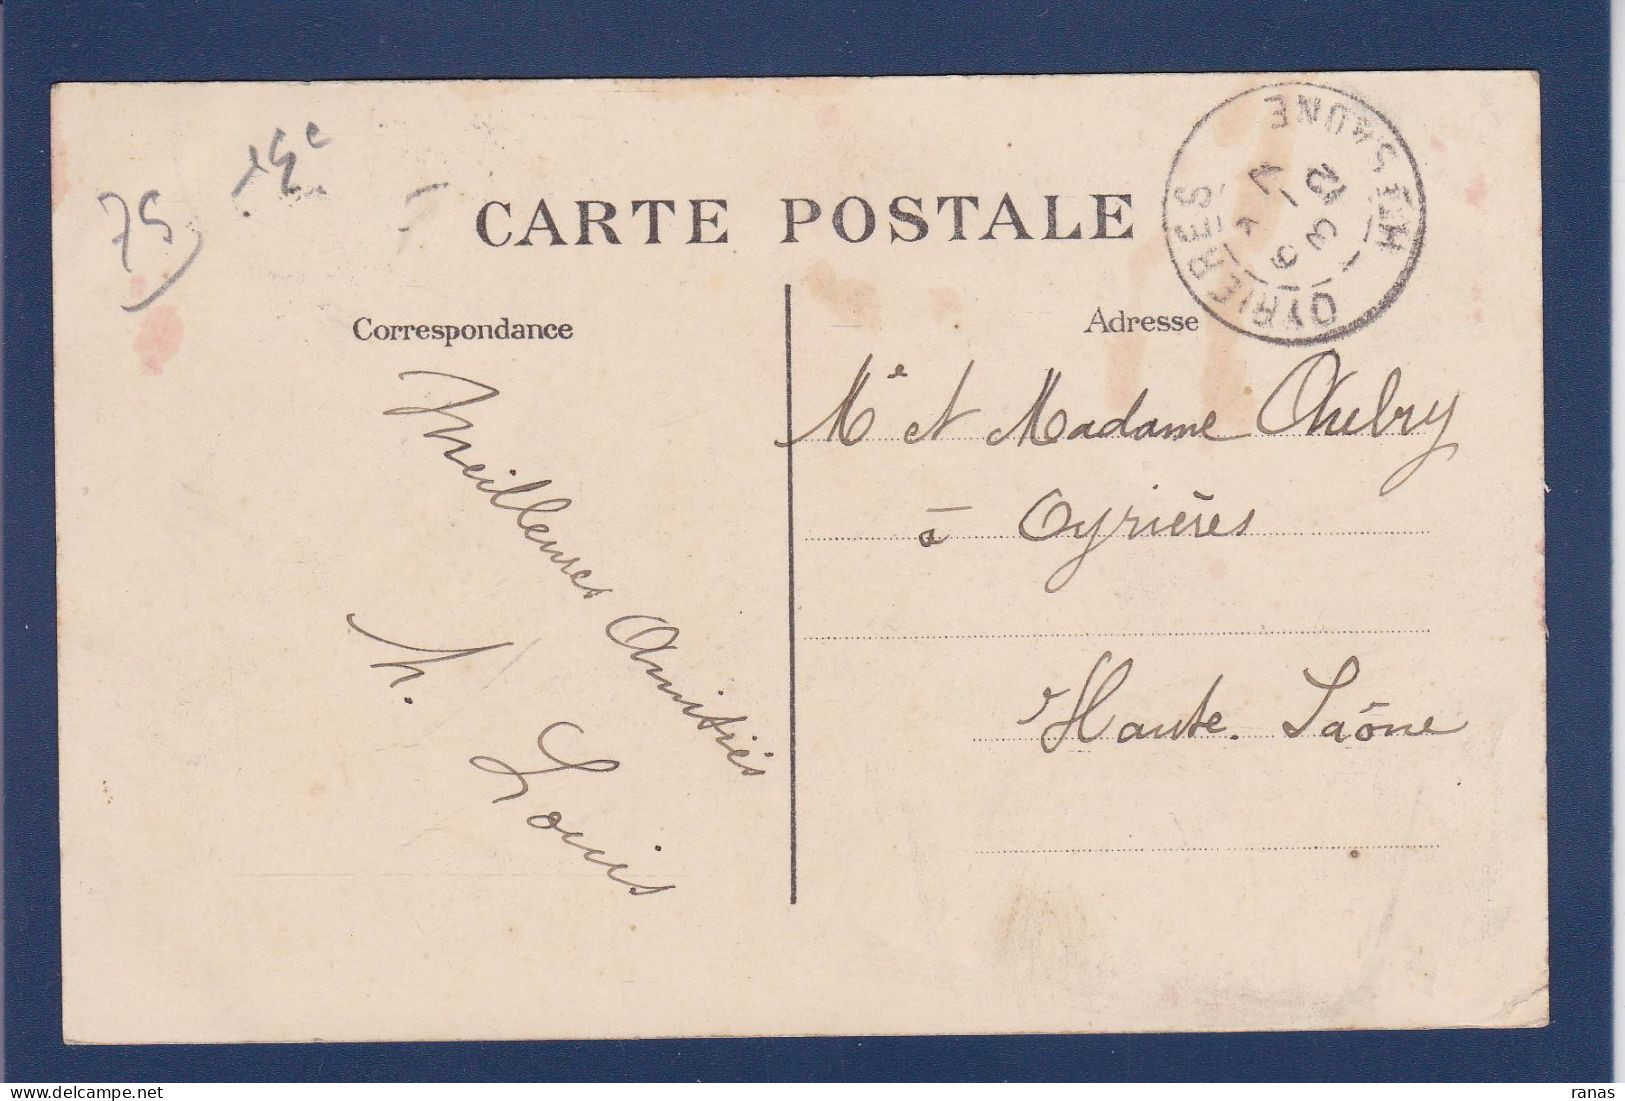 75
15c
CARTE POSTALE
OYRIERES
HTE SAONE
Correspondance
Adresse
Meilleures Amitiés
h. Louis
Me et Madame
à Oyrières
Haute-Saône
ranas